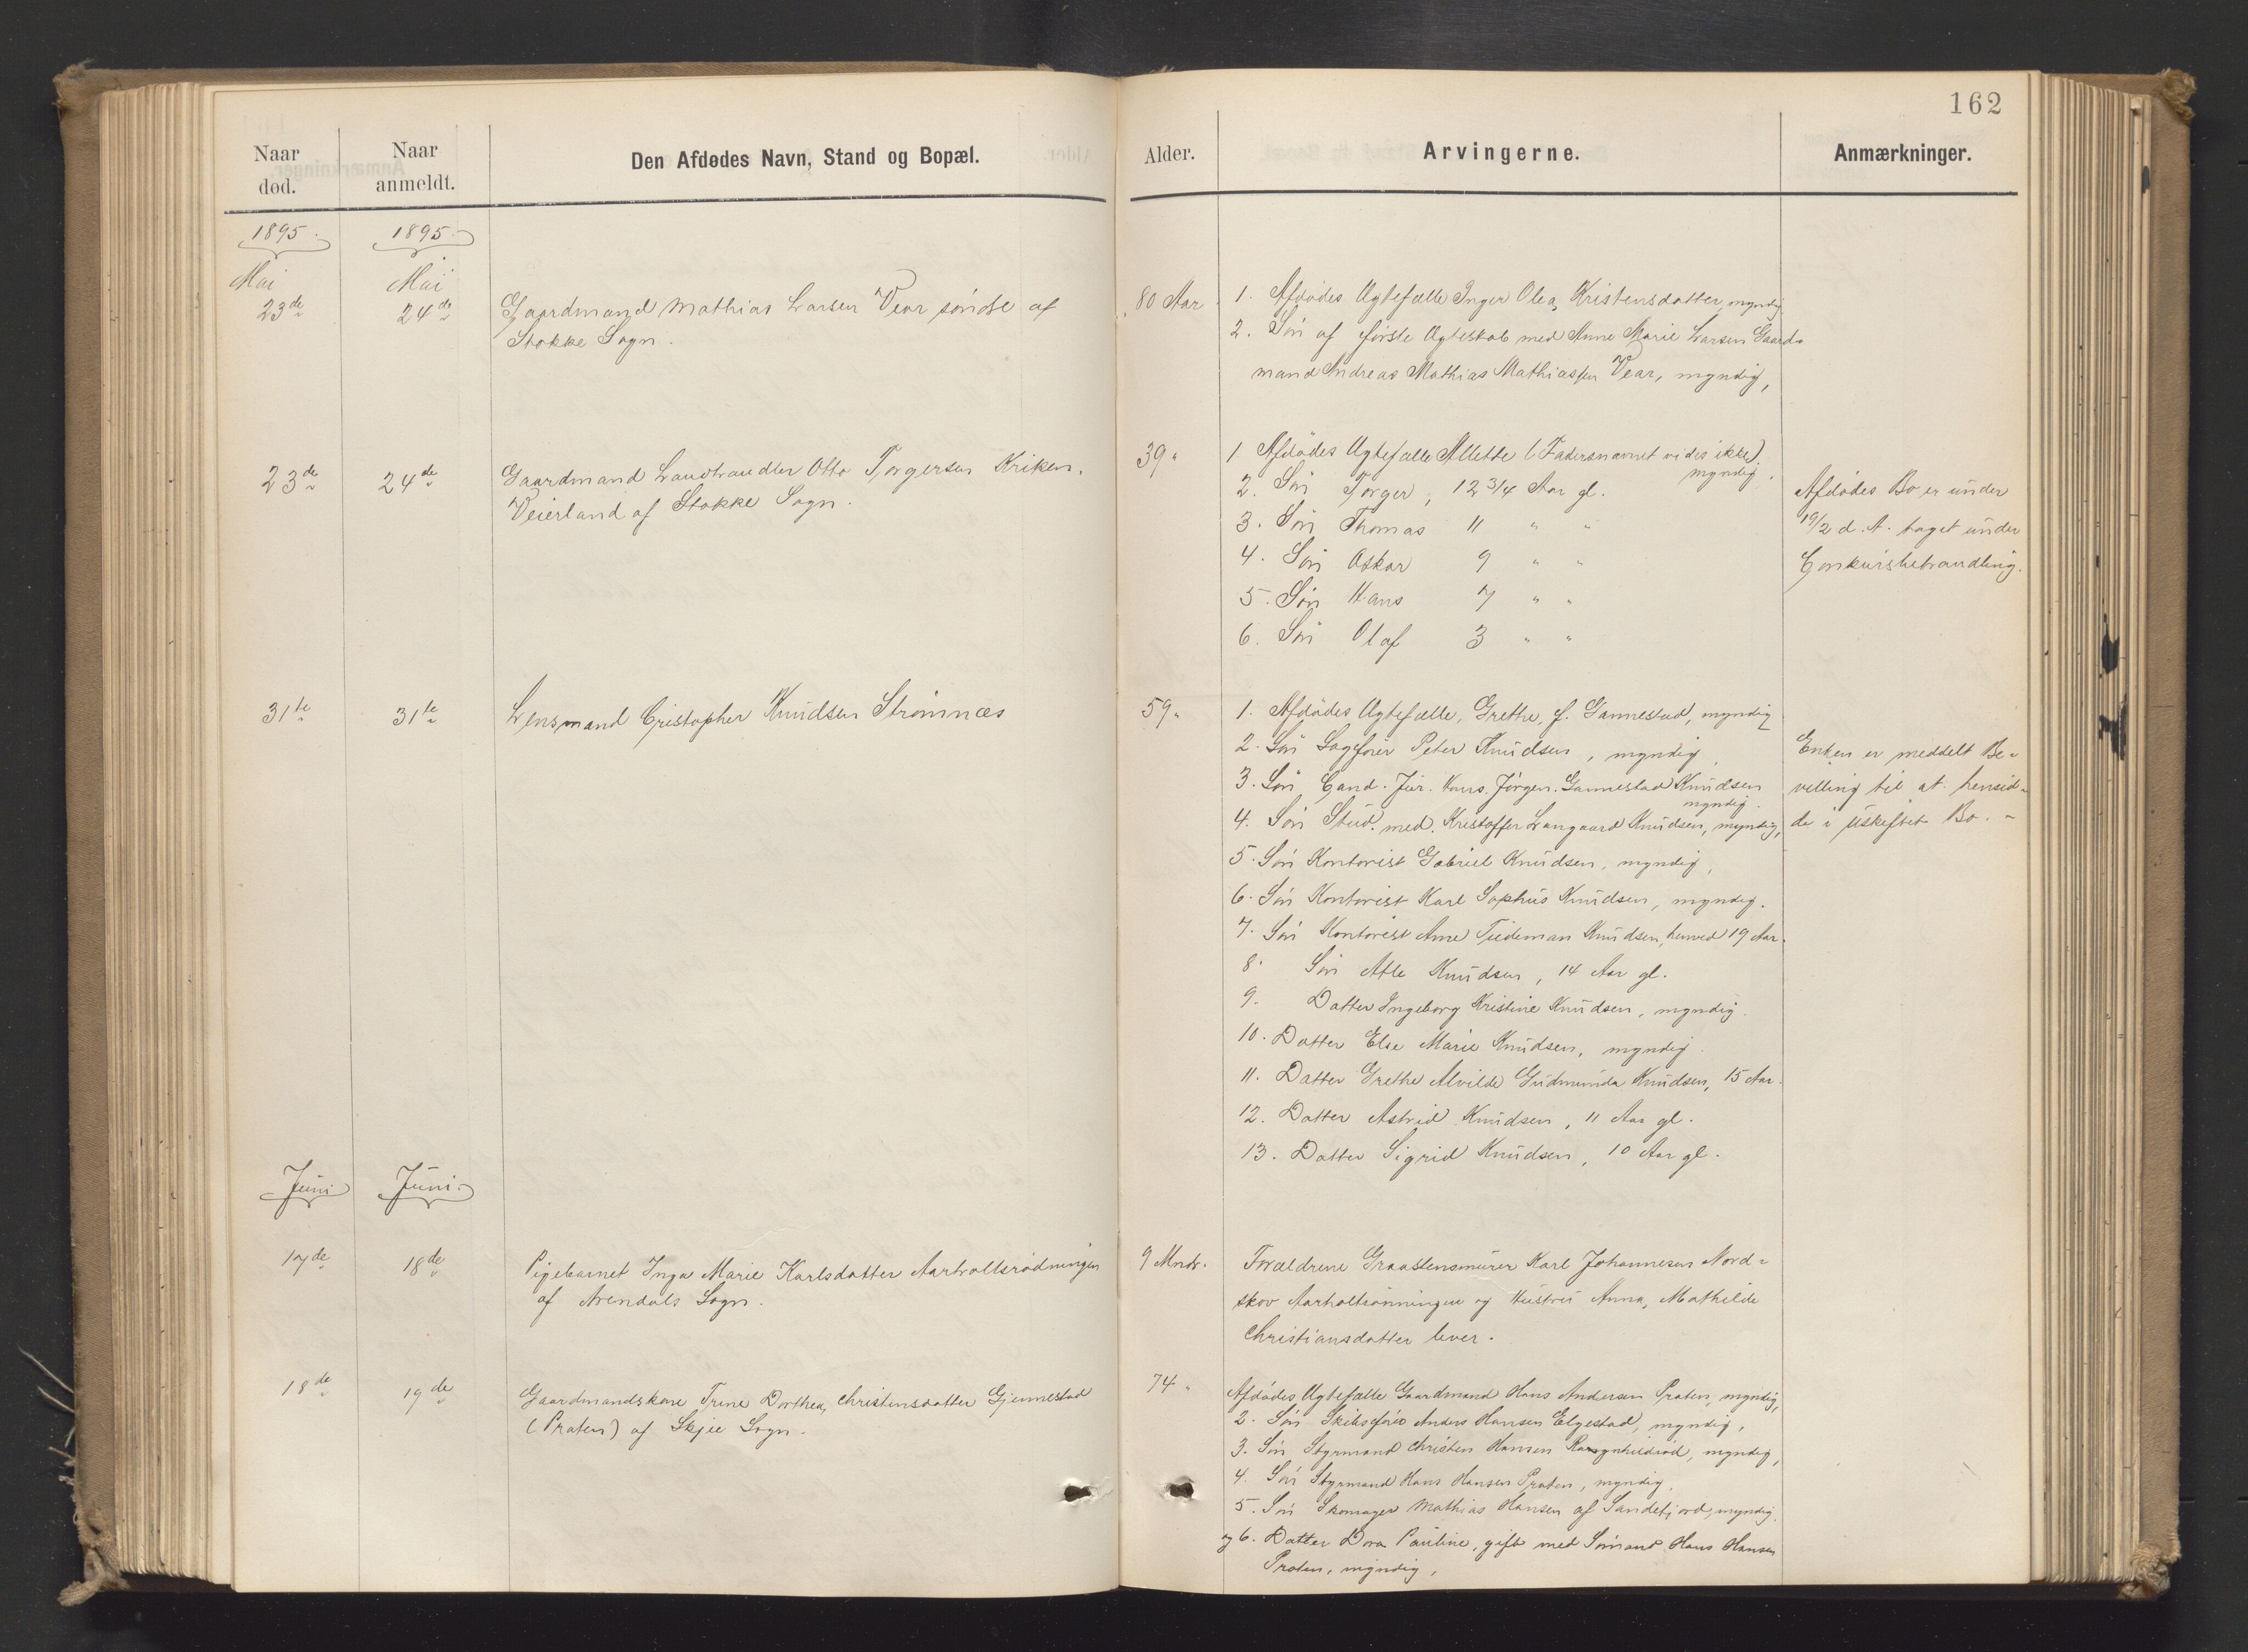 162
Naar død.
Naar anmeldt.
Den Afdødes Navn, Stand og Bopæl.
Alder.
Arvingerne.
Anmærkninger.
1895.
1895.
Mai
Mai
23de
24de
Gaardmand Mathias Larsen Vear söndre af
Stokke Sogn.
80 Aar
1. Afdödes Ægtefælle Inger Olea, Kristensdatter, myndig
2. Sön af förste Ægteskab med Anne Marie Larsen Gaard-
mand Andreas Mathias Mathiassen Vear, myndig,
23de
24de
Gaardmand Landhandler Otto Torgersen Kriken.
Veierland af Stokke Sogn.
39 "
1 Afdödes Ægtefælle Allette (Fadersnavnet vides ikke)
myndig.
2. Sön Torger, 12 3/4 Aar gl.
3. Sön Thomas 11 " "
4. Sön Oskar 9 " "
5. Sön Hans 7 " "
6. Sön Olaf 3 " "
Afdödes Bo er under
19/2 d. A. taget under
Conkursbehandling.
31te
31te
Lensmand Cristopher Knudsen Strömnæs
59 "
1. Afdödes Ægtefælle, Grethe, f. Gannestad, myndig
2. Sön Sagförer Peter Knudsen, myndig,
3. Sön Cand. Jur. Hans. Jörgen. Gannestad Knudsen
myndig.
4. Sön Stud. med. Kristoffer Langaard Knudsen, myndig,
5. Sön Kontorist Gabriel Knudsen, myndig,
6. Sön Kontorist Karl Sophus Knudsen, myndig.
7. Sön Kontorist Arne Tiedeman Knudsen, henved 19 Aar.
8. Sön Atle Knudsen, 14 Aar gl.
9. Datter Ingeborg Kristine Knudsen, myndig.
10. Datter Else Marie Knudsen, myndig.
11. Datter Grethe Alvilde Gudmunda Knudsen, 15 Aar.
12. Datter Astrid Knudsen, 11 Aar gl.
13. Datter Sigrid Knudsen, 10 Aar gl.
Enken er meddelt Be-
villing til at hensid-
de i uskiftet Bo. -
Juni
Juni.
17de
18de
Pigebarnet Inga Marie Karlsdatter Aarholtsrödningen
af Arendals Sogn.
9 Mndr.
Forældrene Graastensmurer Karl Johannesen Nord-
skov Aarholtrönningen og Hustru Anna, Mathilde
Christiansdatter lever.
18de
19de
Gaardmandskone Trine Dorthea, Christensdatter Gjennestad
(Praten) af Skjee Sogn.
74 "
Afdödes Ægtefælle Gaardmand Hans Andersen Praten, myndig,
2. Sön Skibsförer Anders Hansen Elgestad, myndig,
3. Sön Styrmand Christen Hansen Ragnhildröd, myndig,
4. Sön Styrmand Hans Hansen Praten, myndig,
5. Sön Skomager Mathias Hansen af Sandefjord, myndig,
og 6. Datter Dora Pauline, gift med Sömand Hans Hansen
Praten, myndig,